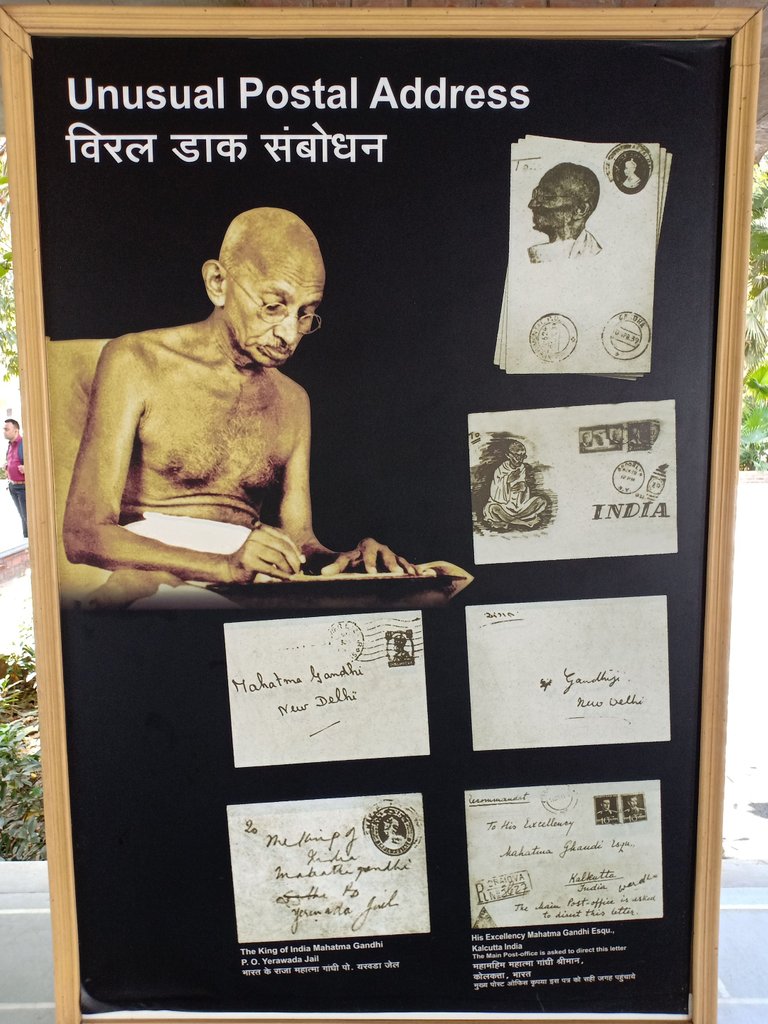 Unusual Postal Address
विरल डाक संबोधन
To...
To
INDIA
Mahatma Gandhi
New Delhi
Gandhiji
New Delhi
To
The King of
India
Mahatma gandhi
Yerwada Jail
Recommandat
To His Excellency
Mahatma Ghandi Esqu.,
Kalkutta
India
The Main Post-office is asked
to direct this letter.
The King of India Mahatma Gandhi
P. O. Yerawada Jail
भारत के राजा महात्मा गांधी पो. यरवडा जेल
His Excellency Mahatma Gandhi Esqu.,
Kalcutta India
The Main Post-office is asked to direct this letter
महामहिम महात्मा गांधी श्रीमान,
कोलकत्ता, भारत
मुख्य पोस्ट ऑफिस कृपया इस पत्र को सही जगह पहुंचाये